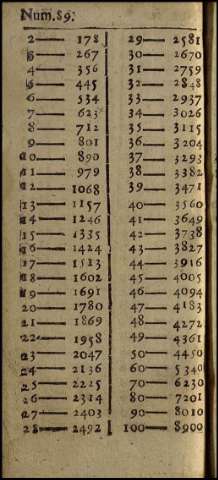 Num.89.
2— 178
3— 267
4— 356
5— 445
6— 534
7— 623
8— 712
9— 801
10— 890
11— 979
12— 1068
13— 1157
14— 1246
15— 1335
16— 1424
17— 1513
18— 1602
19— 1691
20— 1780
21— 1869
22— 1958
23— 2047
24— 2136
25— 2225
26— 2314
27— 2403
28— 2492
29— 2581
30— 2670
31— 2759
32— 2848
33— 2937
34— 3026
35— 3115
36— 3204
37— 3293
38— 3382
39— 3471
40— 3560
41— 3649
42— 3738
43— 3827
44— 3916
45— 4005
46— 4094
47— 4183
48— 4272
49— 4361
50— 4450
60— 5340
70— 6230
80— 7201
90— 8010
100— 8900